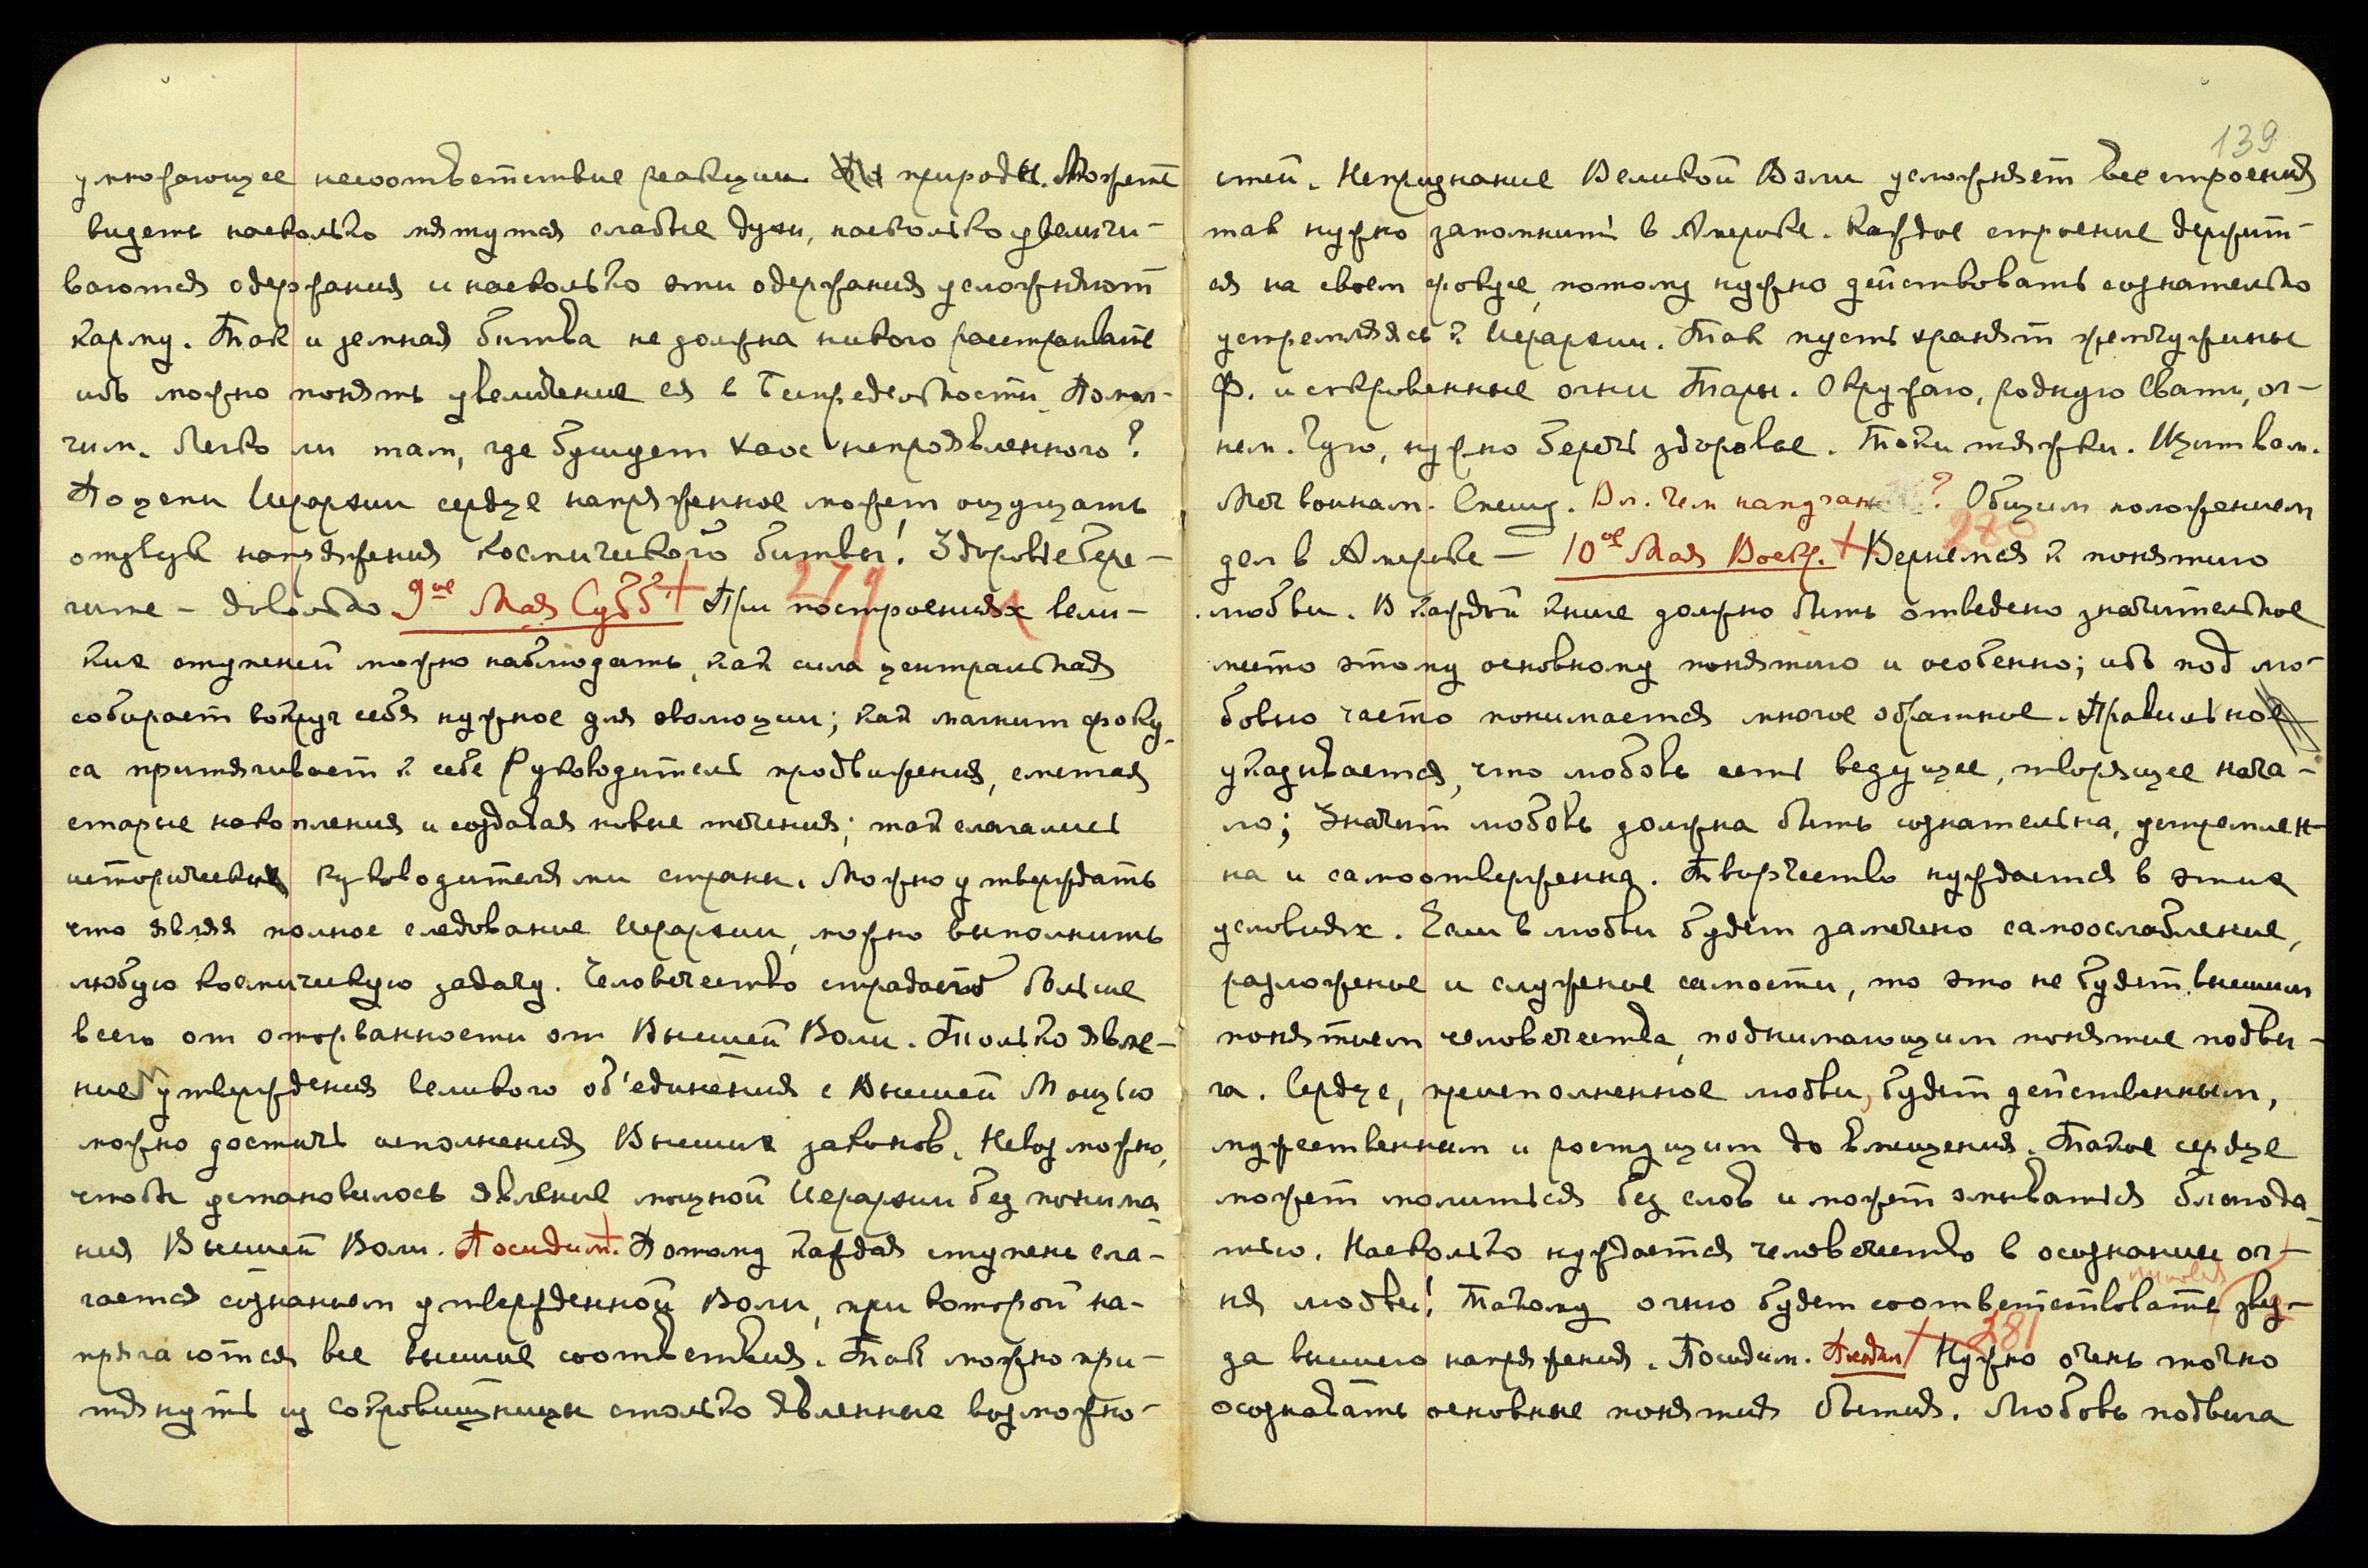 умножающее несоответствие реакции природы. Можете
видеть насколько мятутся слабые духи, насколько увеличи-
ваются одержания и насколько эти одержания усложняют
карму. Так и земная битва не должна никого расстраивать
ибо можно понять увеличение ея в Беспредельности. Помол-
чим. Легко ли там, где бушует хаос непроявленного?
По цепи Иерархии сердце напряженное может ощущать
отзвук напряжения космического битвы! Здоровье бере-
гите - довольно 9ое Мая Субб. + 279 При построениях вели-
ких ступеней можно наблюдать, как сила центральная
собирает вокруг себя нужное для эволюции; как магнит фоку-
са притягивает к себе Руководитель продвижения, сметая
старые накопления и создавая новые течения; так слагались
исторические руководителями страны. Можно утверждать
что являя полное следование Иерархии, можно выполнить
любую космическую задачу. Человечество страдает больше
всего от оторванности от Высшей Воли. Только явле-
нием утверждения великого об'единения с Высшей Мощью
можно достичь исполнения Высших законов. Невозможно,
чтобы установилось явление мощной Иерархии без понима-
ния Высшей Воли. Посидим. + Потому каждая ступень сла-
гается сознанием утвержденной Воли, при которой на-
прягаются все высшие соответствия. Так можно при-
тянуть из Сокровищницы столько явленные возможно-
139
стей. Непризнание Великой Воли усложняет все строения
так нужно запомнить в Америке. Каждое строение держит-
ся на своем фокусе, потому нужно действовать сознательно
устремляясь к Иерархии. Так пусть хранят жемчужины
Ф. и сокровенные огни Тары. Окружаю, родную Свати, ог-
нем. Чую, нужно беречь здоровье. Токи тяжки. Щит вам.
Меч воинам. Спешу. Вл. Чем напуган ? Общим положением
дел в Америке — 10ое Мая Воскр. + 280 Вернемся к понятию
любви. В каждой книге должно быть отведено значительное
место этому основному понятию и особенно; ибо под лю-
бовью часто понимается многое обратное. Правильно
указывается, что любовь есть ведущее, творящее нача-
ло; Значит любовь должна быть сознательна, устремлен-
на и самоотверженна. Творчество нуждается в этих
условиях. Если в любви будет замечено самоослабление,
разложение и служение самости, то это не будет высшим
понятием человечества, поднимающим понятие подви-
га. Сердце, преисполненное любви, будет действенным,
мужественным и растущим до вмещения. Такое сердце
может молиться без слов и может омываться благода-
тью. Насколько нуждается человечество в осознании ог-
ня любви! Такому огню будет соответствовать звез-
да высшего напряжения. Посидим. + 281 Нужно очень точно
осознавать основные понятия бытия. Любовь подвига